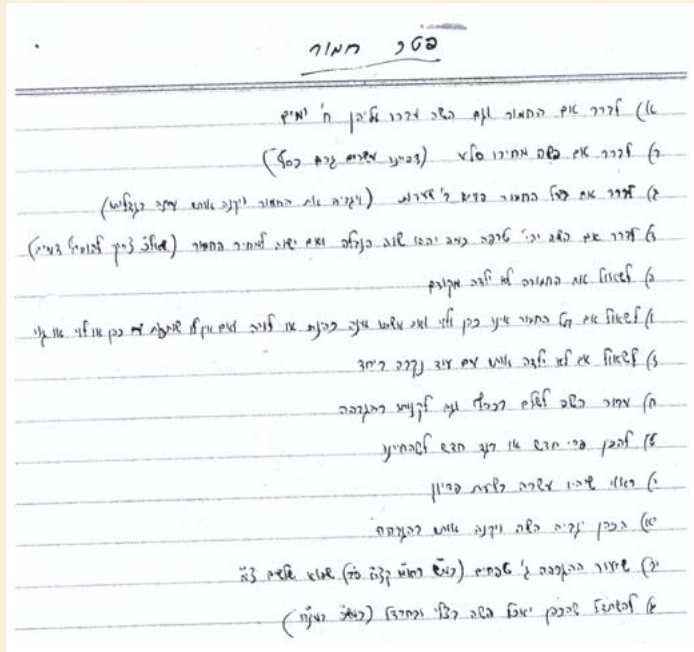 פטר חמור
א) לברר אם החמור וגם השה עברו עליהן ח' ימים
ב) לברר אם השה מחירו סלע (דהיינו עשרים גרם כסף)
ג) לברר אם בעל החמור הביא ב' שערות (ויגביה את החמור ויקנה אותו
ד) לברר אם השה יהי' טרפה כמה יהי' שוה הנבלה ואם ישוה למחיר החמור (שאול"כ צריך להוסיף דמים)
ה) לשאול אם החמורה לא ילדה מקודם
ו) לשאול אם בעל החמור אינו כהן ולוי ואם אשתו אינה כהנת או לויה ואם אין לו שותפות עם כהן או לוי או גוי
ז) לשאול אם לא ילדה אותו עם עוד נקבה ביחד
ח) עבור השה לשלם בכסף וגם לקנותו בהגבהה
ט) להכין פרי חדש או בגד חדש לשהחיינו
י) כדאי שיהיו עשרה בשעת פדיון
יא) הכהן יגביה השה ויקנה אותו בהגבהה
יב) שיעור ההגבהה ג' טפחים (כמ"ש סד) שהוא שלשים
יג) להשתדל שהכהן יאכל השה בצלי ובחרדל